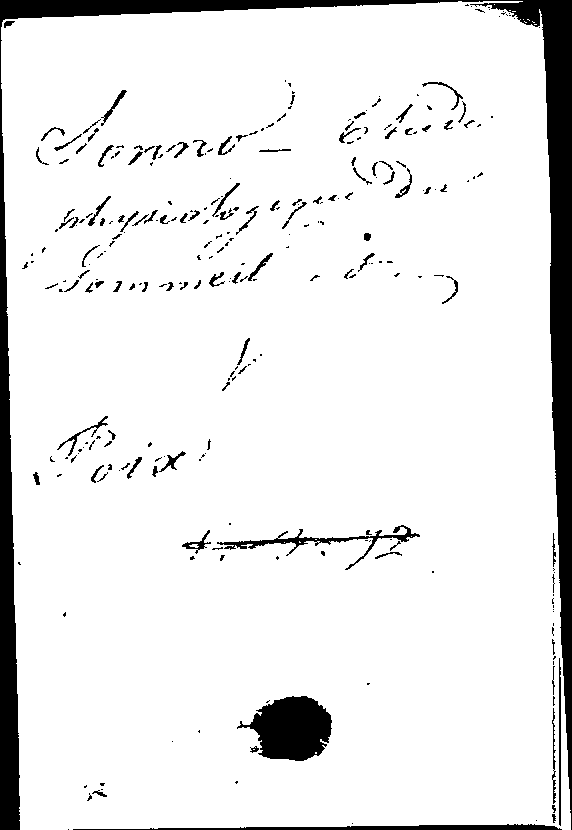 Sonno – Etude
physiologique du
Sommeil
V
Foix
1. 3. 72